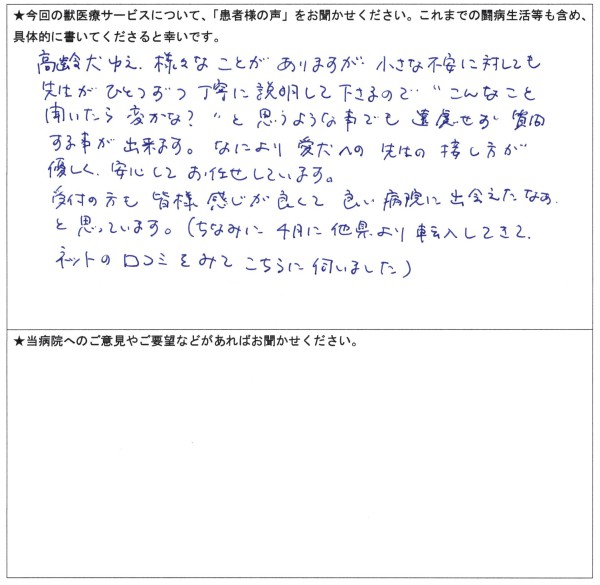 ★今回の獣医療サービスについて、「患者様の声」をお聞かせください。これまでの闘病生活等も含め、
具体的に書いてくださると幸いです。
高齢犬ゆえ、様々なことがありますが 小さな不安に対しても
先生がひとつずつ丁寧に説明して下さるので "こんなこと
聞いたら変かな？"と思うような事でも遠慮せず質問
する事が出来ます。なにより愛犬への先生の接し方が
優しく、安心してお任せしています。
受付の方も皆様感じが良くて良い病院に出会えたなぁ
と思っています。(ちなみに4月に他県より転入してきて、
ネットの口コミをみてこちらに伺いました)
★当病院へのご意見やご要望などがあればお聞かせください。